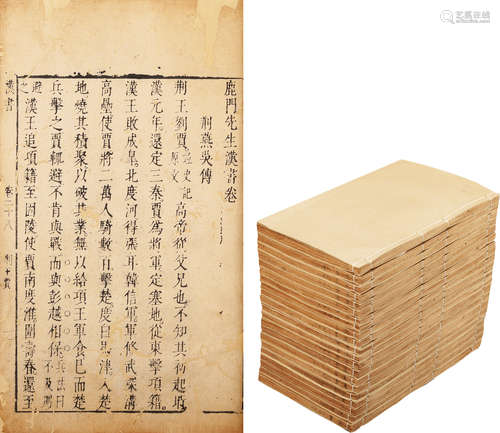 鹿門先生漢書卷
荆燕吳傳
荆王劉賈 高帝從父兄也不知其初起時
漢元年還定三秦賈爲將軍定塞地從東擊項籍
漢王敗成臯北度河得張耳韓信軍軍修武深溝
高壘使賈將二萬人騎數百擊楚度白馬津入楚
地燒其積聚以破其業無以給項王軍食已而楚
兵擊之賈輒避不肯與戰而與彭越相保
漢王追項籍至固陵使賈南度淮圍壽春還至
漢書
卷三十八